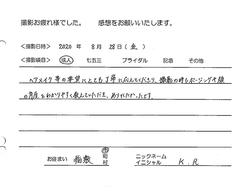 撮影お疲れ様でした。 感想をお願いいたします。
<撮影日時> 2020 年 8 月 28 日 (金)
<撮影項目> 成人 七五三 ブライダル 記念 その他
ヘアメイク等の準備にとても丁寧に 撮影の時もポージングや顔
の角度をわかりやすく教えていただき、ありがたかったです。
お住まい 稲敷 市 町 村 ニックネーム イニシャル K.R